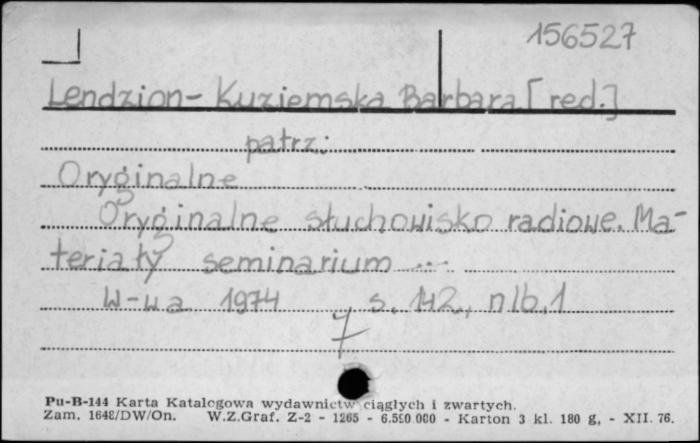 156527
Lendzion-Kuziemska Barbara [red.]
patrz:
Oryginalne
Oryginalne słuchowisko radiowe. Ma-
teriały seminarium ...
W-wa 1974 s. 142, nlb. 1
7
Pu-B-144 Karta Katalogowa wydawnictw ciągłych i zwartych.
Zam. 1648/DW/On. W.Z.Graf. Z-2 - 1265 - 6.580.000 - Karton 3 kl. 180 g. - XII. 76.